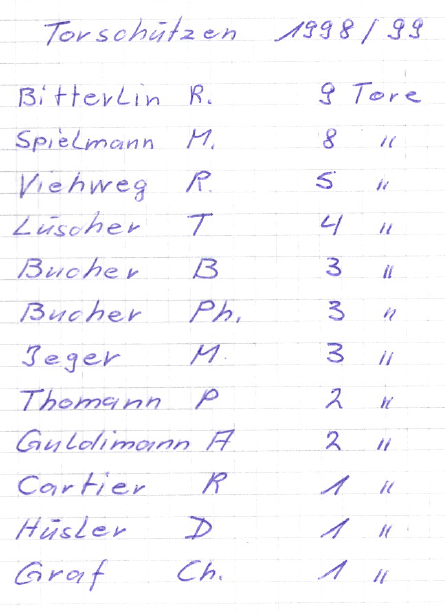 Torschützen 1998/99
Bitterlin R. 9 Tore
Spielmann M. 8 "
Viehweg R. 5 "
Lüscher T 4 "
Bucher B 3 "
Bucher Ph. 3 "
Jeger M. 3 "
Thomann P 2 "
Guldimann A 2 "
Cartier R 1 "
Hüsler D 1 "
Graf Ch. 1 "